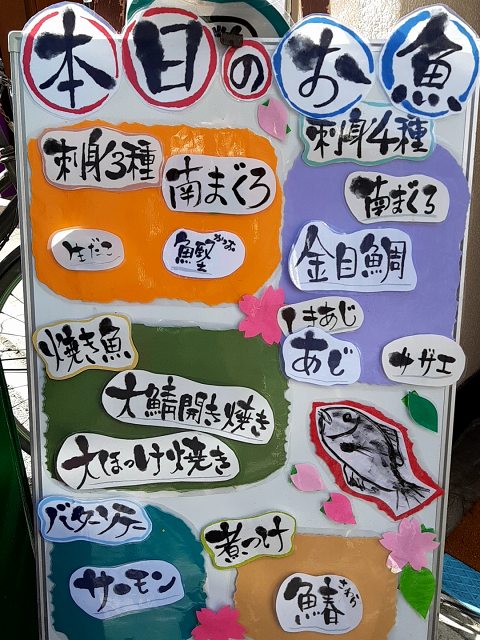 本日のお魚
刺身3種
南まぐろ
生だこ
鰹
かつお
刺身4種
南まぐろ
金目鯛
しまあじ
あじ
サザエ
焼き魚
大鯖開き焼き
大ほっけ焼き
バターソテー
サーモン
煮つけ
鰆
さわら